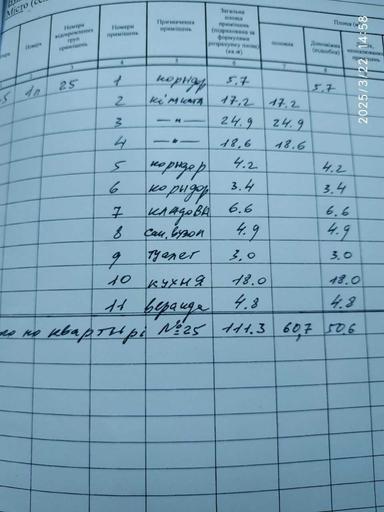 Місто (се
2025/3/22 14:58
Номери відокремлених груп приміщень
Номери приміщень
Призначення приміщень
Загальна площа приміщень (підрахована за формулами розрахунку площ) (кв.м)
Площа (
Поверх
основна
Допоміжна (підсобна)
2 3 4 5 6 7 8
1п 25 1 коридор 5.7 5.7
2 кімната 17.2 17.2
3 —〃— 24.9 24.9
4 —〃— 18.6 18.6
5 коридор 4.2 4.2
6 коридор 3.4 3.4
7 кладова 6.6 6.6
8 сан.вузол 4.9 4.9
9 туалет 3.0 3.0
10 кухня 18.0 18.0
11 веранда 4.8 4.8
по квартирі №25 111.3 60,7 50.6